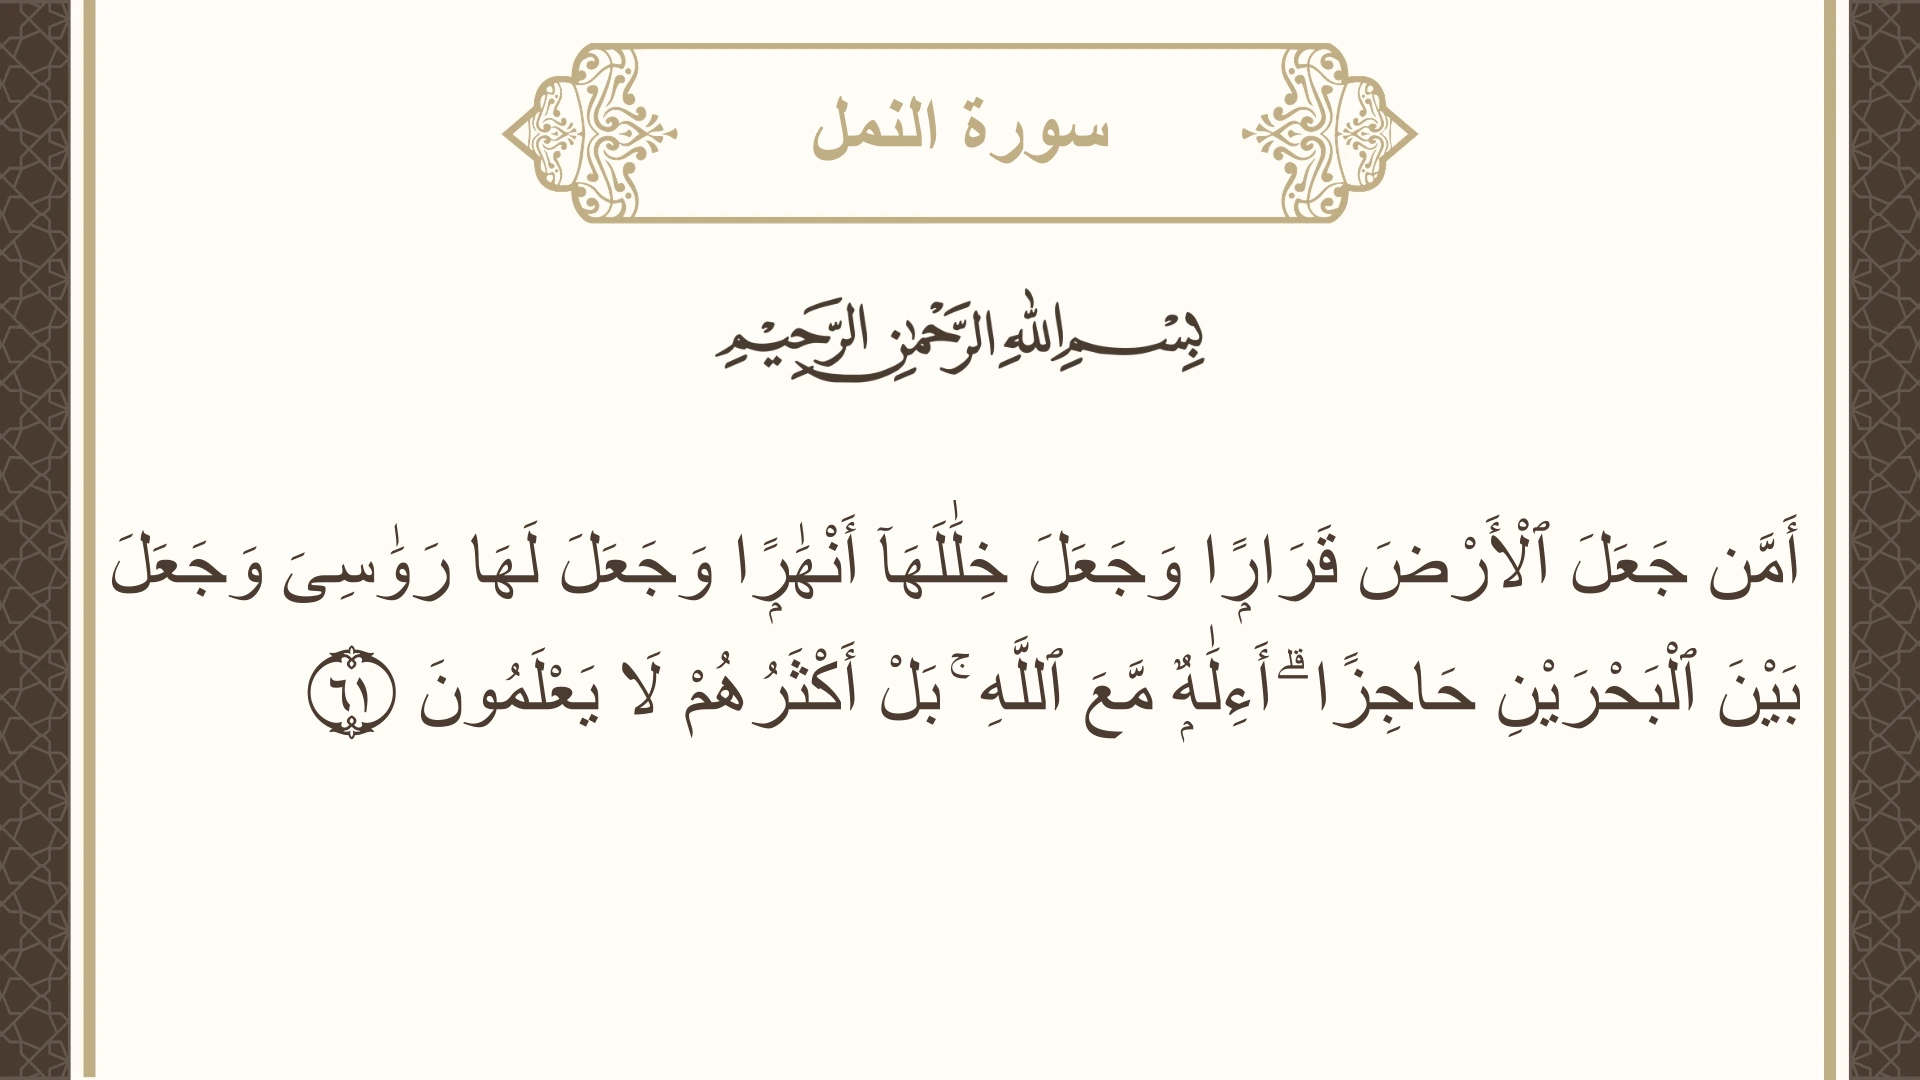 سورة النمل
بِسْمِ اللهِ الرَّحْمٰنِ الرَّحِيْمِ
أَمَّن جَعَلَ ٱلْأَرْضَ قَرَارًۭا وَجَعَلَ خِلَٰلَهَآ أَنْهَٰرًۭا وَجَعَلَ لَهَا رَوَٰسِىَ وَجَعَلَ
بَيْنَ ٱلْبَحْرَيْنِ حَاجِزًا ۗ أَءِلَٰهٌۭ مَّعَ ٱللَّهِ ۚ بَلْ أَكْثَرُهُمْ لَا يَعْلَمُونَ ٦١